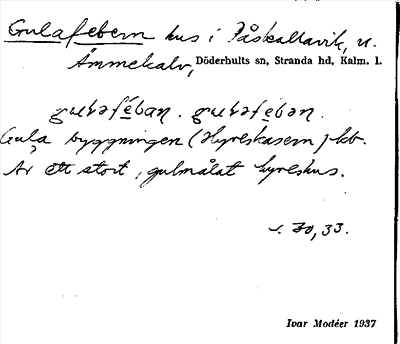 Gulafebern hus i Påskallavik, u.
Ämmekalv, Döderhults sn, Stranda hd, Kalm. l.
gulafeban. gulafebən.
Gula byggningen (Hyreskasern)
Är ett stort, gulmålat hyreshus.
s. 30, 33.
Ivar Modéer 1937